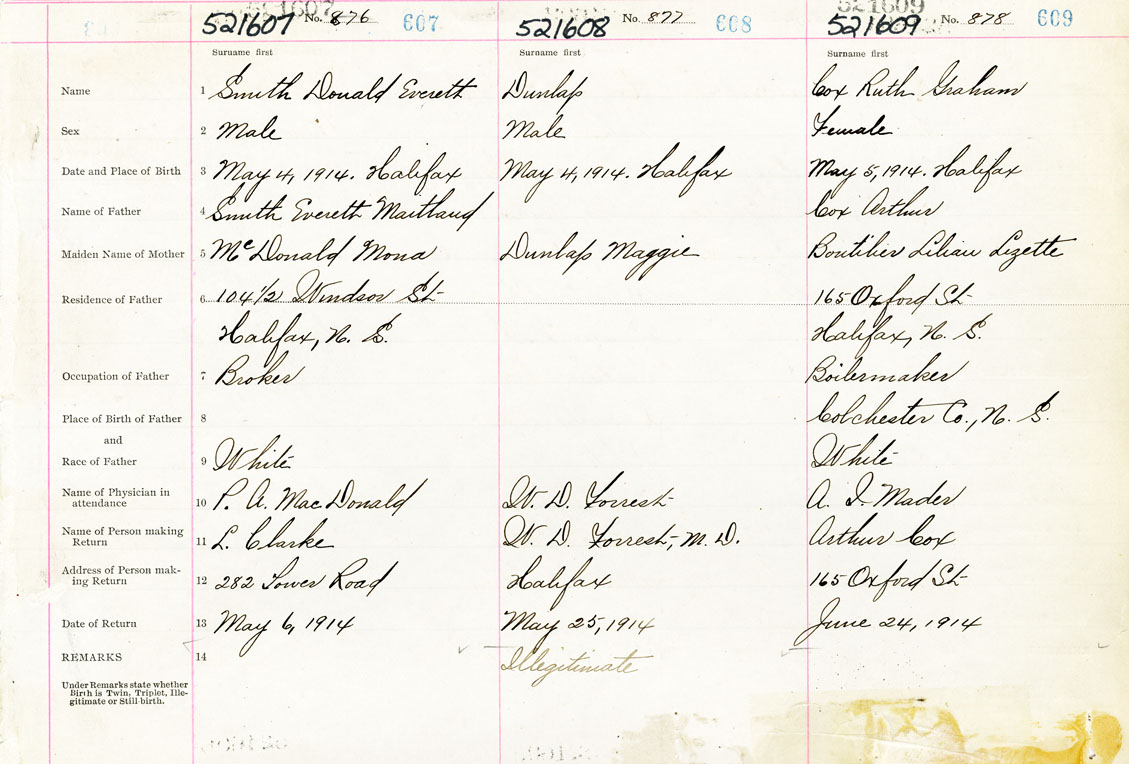 521607 No. 876 607 521608 No. 877 608 521609 521609 No. 878 609
Surname first Surname first Surname first
Name 1 Smith Donald Everett Dunlap Cox Ruth Graham
Sex 2 Male Male Female
Date and Place of Birth 3 May 4, 1914. Halifax May 4, 1914. Halifax May 5, 1914. Halifax
Name of Father 4 Smith Everett Maitland Cox Arthur
Maiden Name of Mother 5 McDonald Mona Dunlap Maggie Boutilier Lilian Lizette
Residence of Father 6 104 1/2 Windsor St 165 Oxford St
Halifax, N. S. Halifax, N. S.
Occupation of Father 7 Broker Boilermaker
Place of Birth of Father 8 Colchester Co., N. S.
and
Race of Father 9 White White
Name of Physician in attendance 10 P. A. MacDonald W. D. Forrest A. I. Mader
Name of Person making Return 11 L. Clarke W. D. Forrest, M. D. Arthur Cox
Address of Person mak-ing Return 12 282 Tower Road Halifax 165 Oxford St
Date of Return 13 May 6, 1914 May 25, 1914 June 24, 1914
REMARKS 14 Illegitimate
Under Remarks state whether
Birth is Twin, Triplet, Ille-
gitimate or Still-birth.